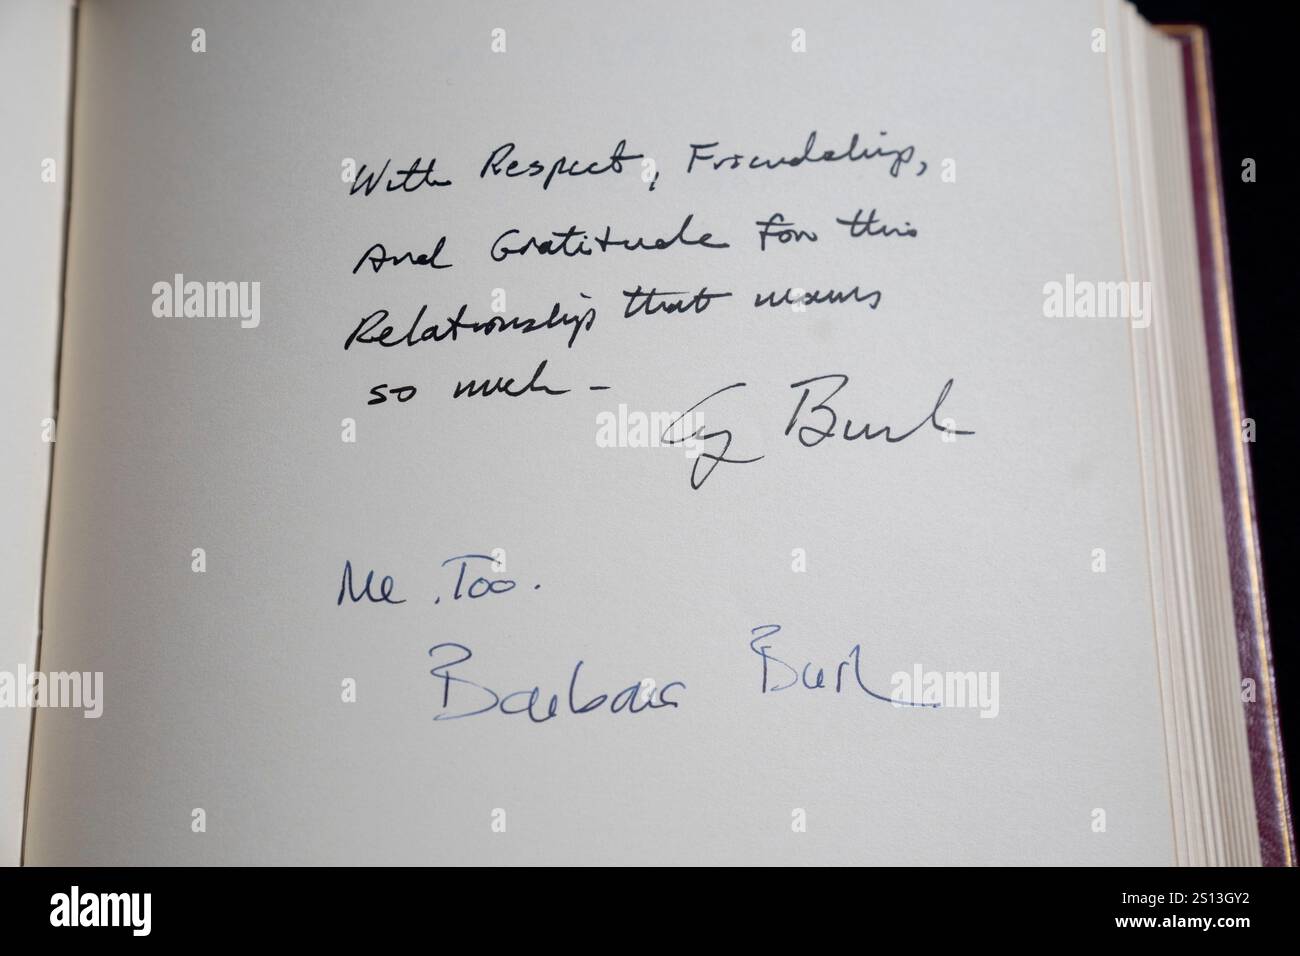 With Respect, Friendship,
And Gratitude For this
Relationship that means
so much –
Gy Bush
Me .Too.
Barbara Bush
a alamy
alamy
Image ID: 2S13GY2
www.alamy.com